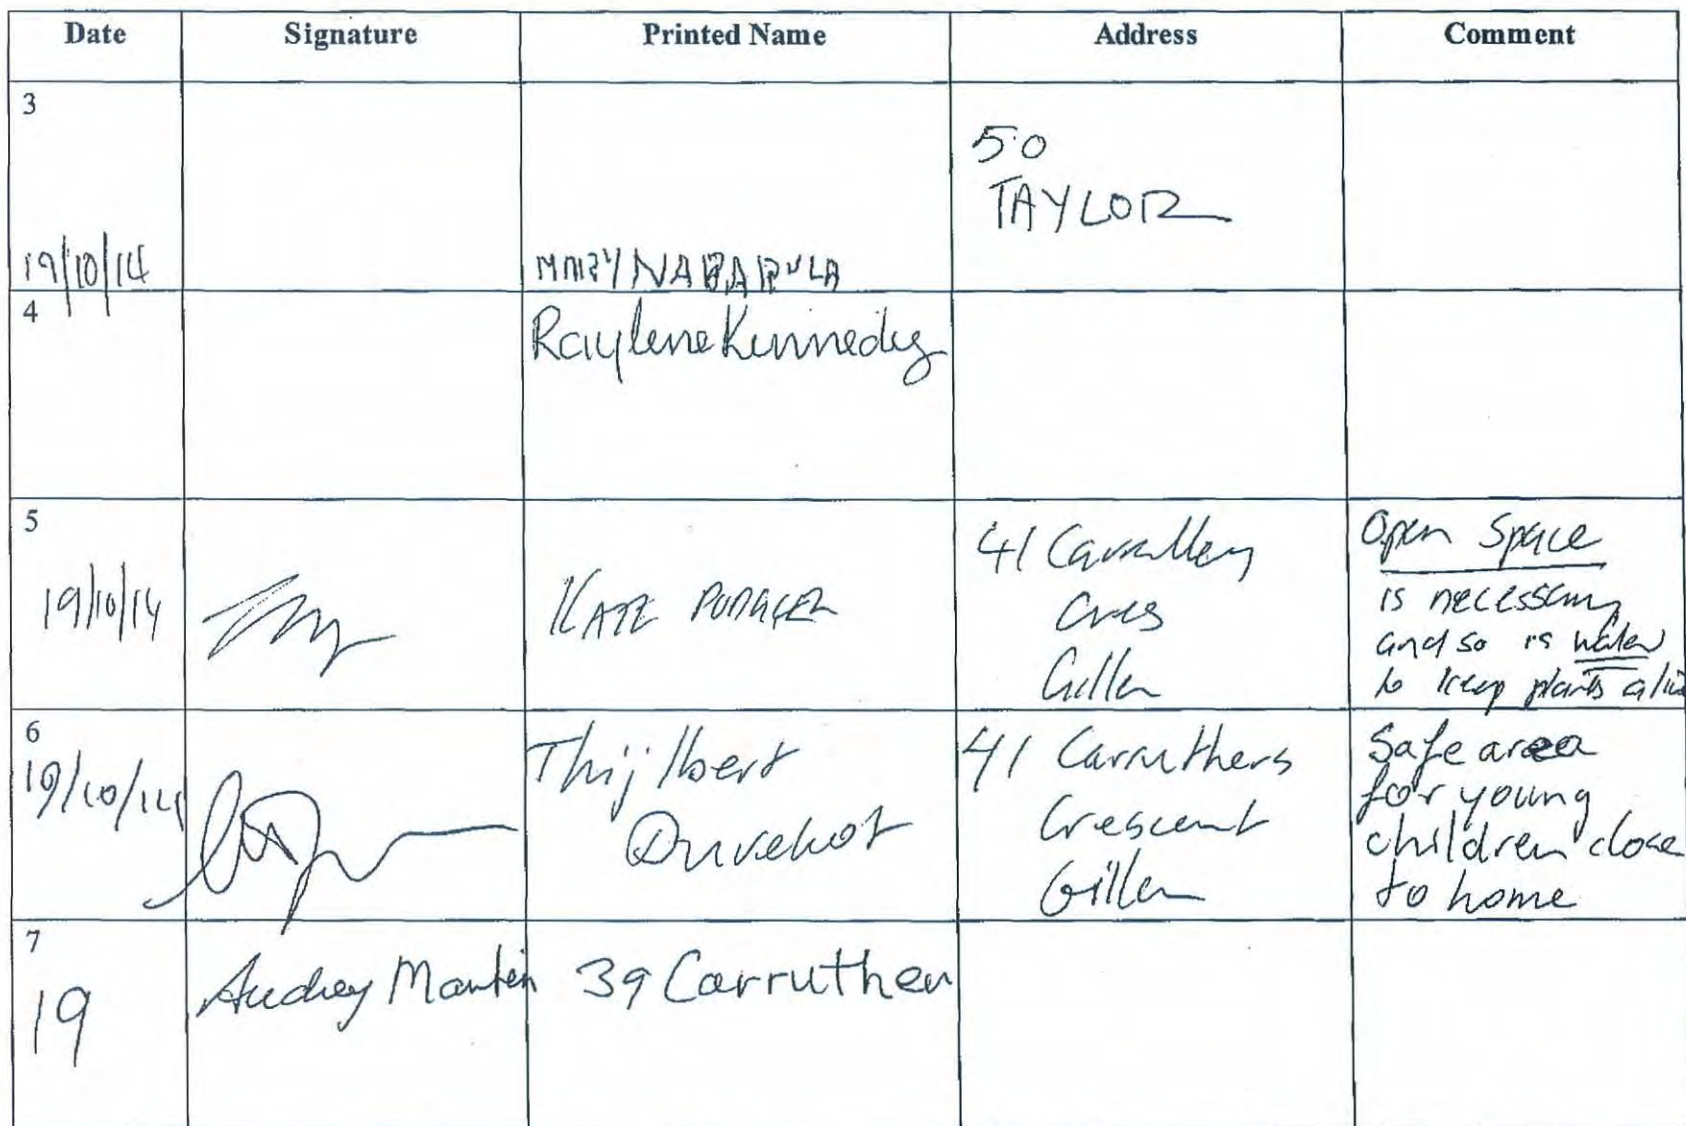 Date Signature Printed Name Address Comment
3
50
TAYLOR
19/10/14 MARY NABARULA
4
Raylene Kennedy
5
19/10/14
KATE
41
Cres
Gillen
Open Space
is necessary
and so is water
to keep plants alive
6
19/10/14
Thijlbert
Duvekot
41 Carruthers
Crescent
Gillen
Safe area
for young
children close
to home
7
19 Audrey Martin 39 Carruthers